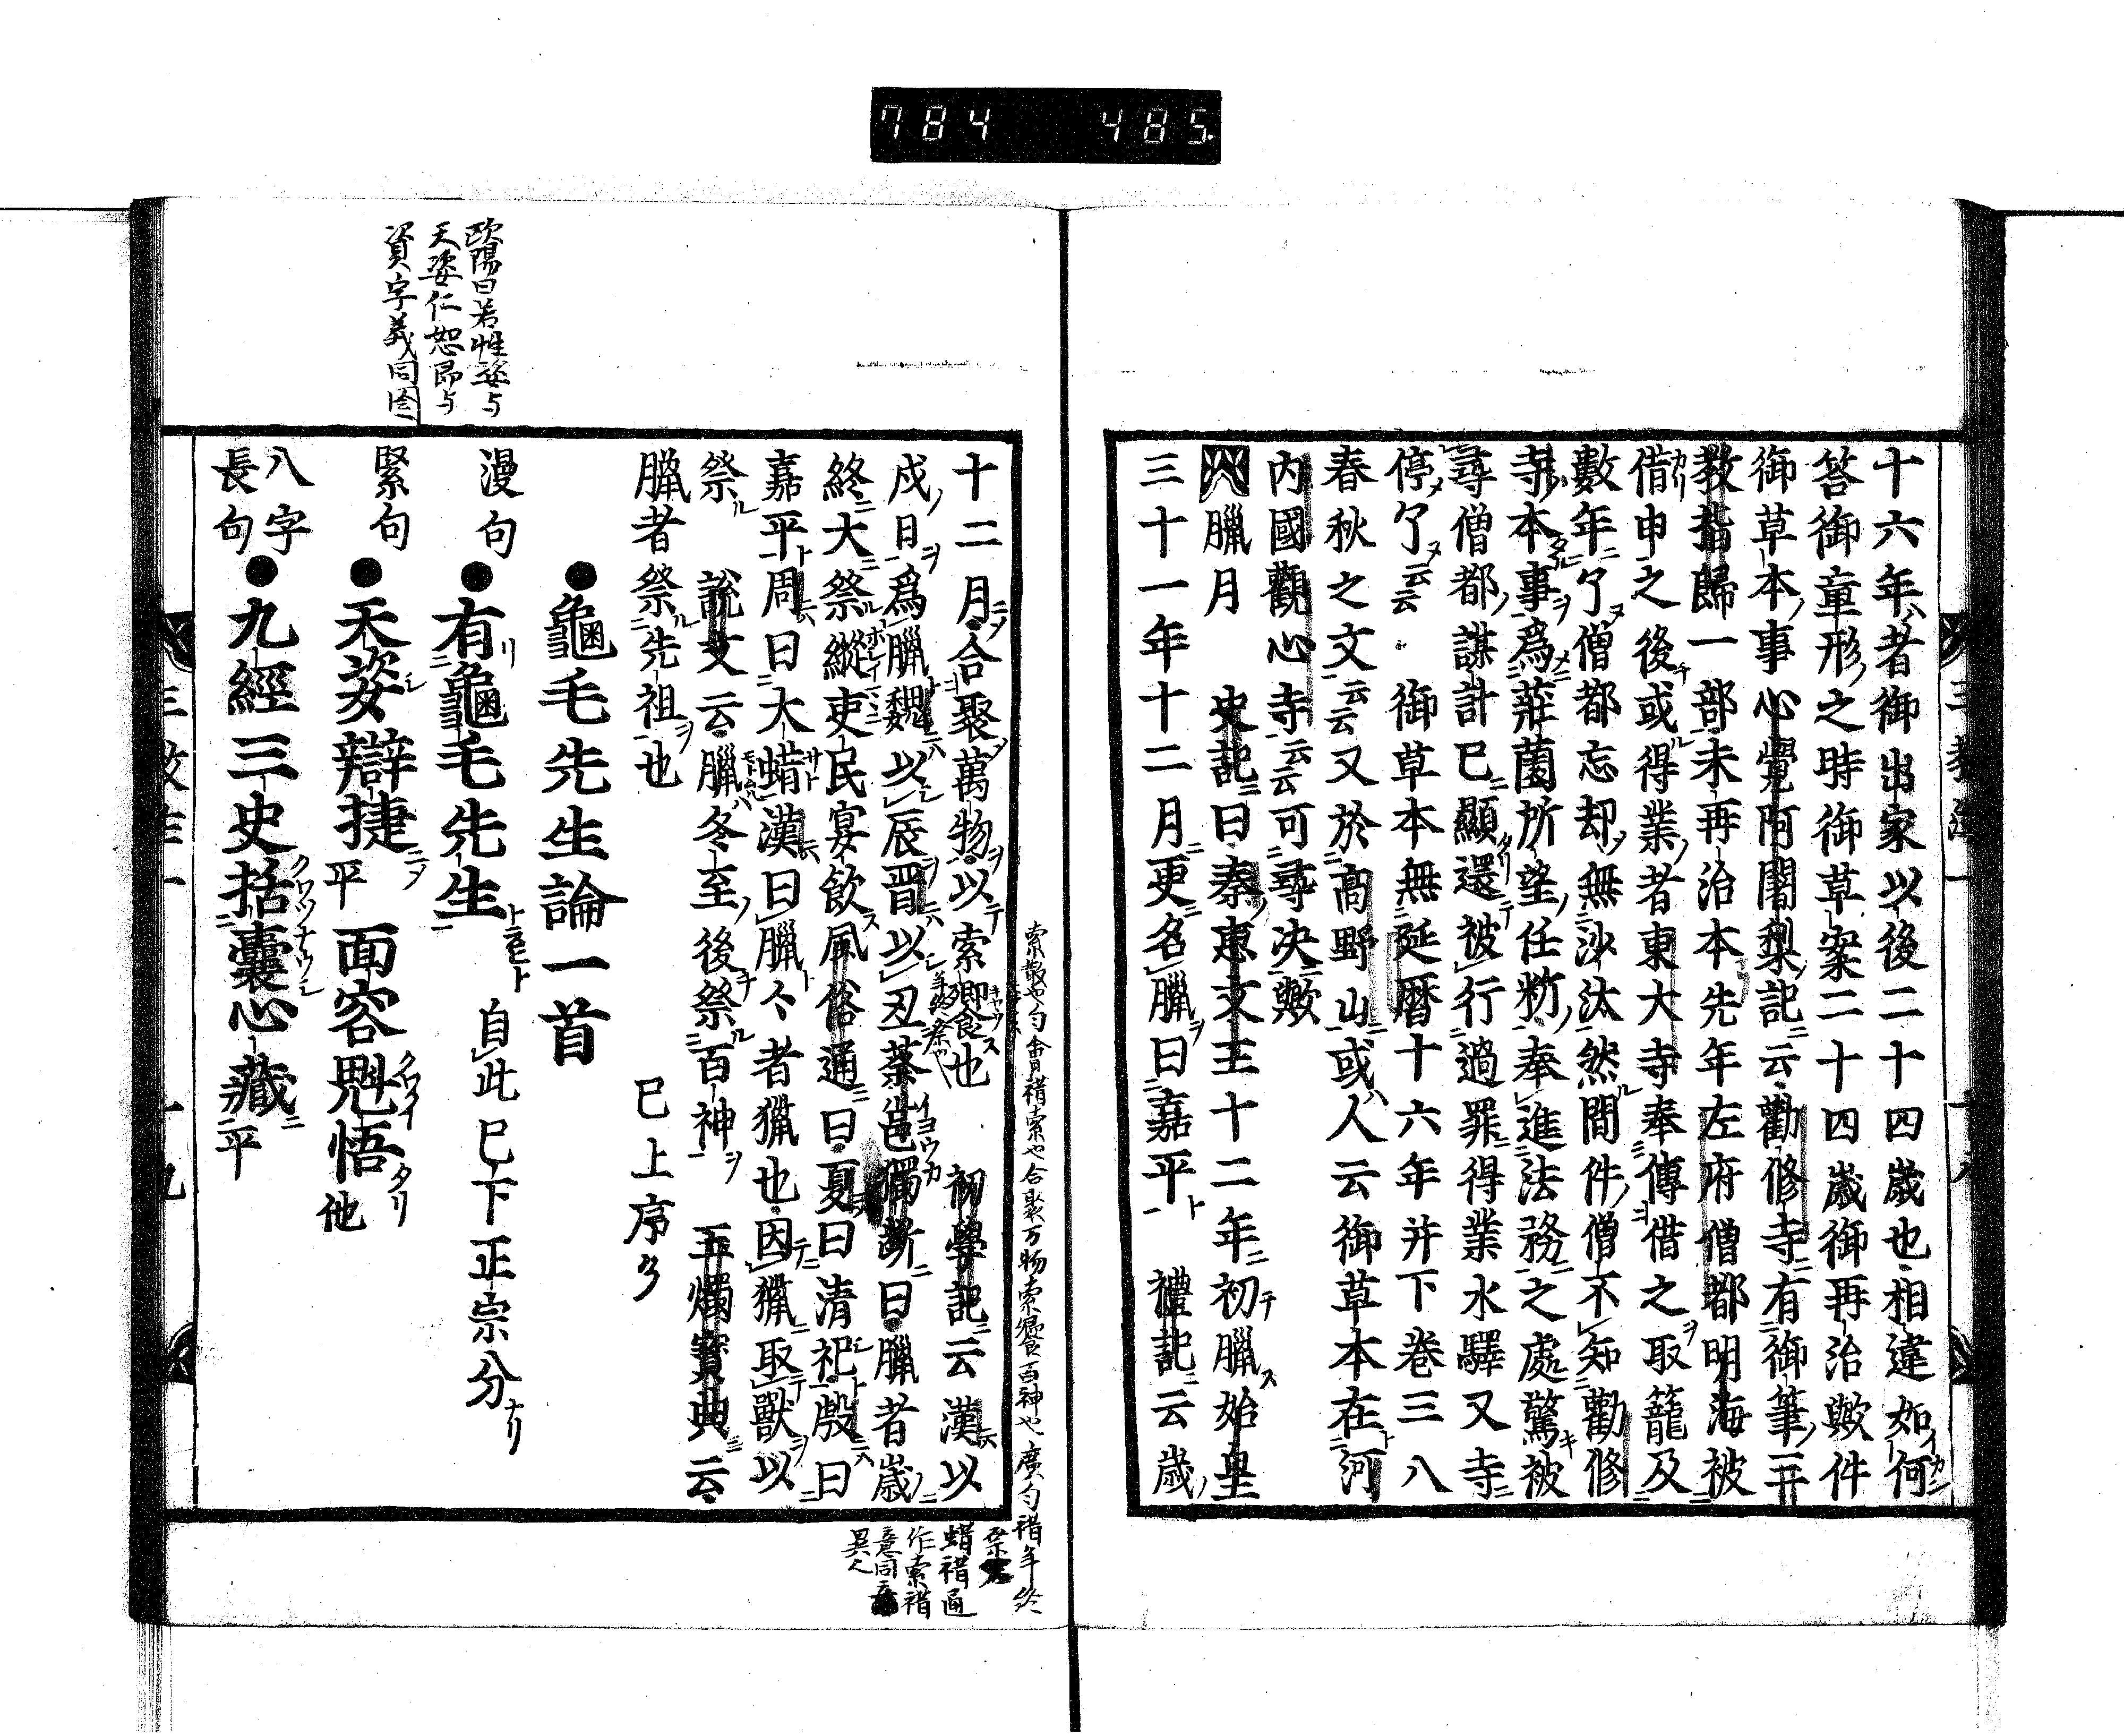 784 485
十六年者御出家以後二十四歳也相違如何
答御章形之時御草案二十四歳御再治歟件
御草本事心覺阿闍梨記云勸修寺有御筆三
教指歸一部未再治本先年左府僧都明海被
借申之後或得業者東大寺奉傳借之取籠及
數年了僧都忘却無沙汰然間件僧不知勸修
寺本事爲莊薗所望任析奉進法務之處驚被
尋僧都謀計已顯還被行過罪得業水驛又寺
停了云云 御草本無延暦十六年并下巻三八
春秋之文云云又於高野山或人云御草本在河
内國觀心寺云云可尋決歟
臘月 史記曰秦惠文王十二年初臘始皇
三十一年十二月更名臘曰嘉平 禮記云歳
十二月合聚萬物以索饗也 初學記云漢以
戍日爲臘魏以辰晋以丑蔡邕獨斷曰臘者歳
終大祭縱吏民宴飲風俗通曰夏曰清祀殷曰
嘉平周曰大蜡漢曰臘々者獵也因獵取獸以
祭 説文云臘冬至後祭百神 玉燭寶典云
臘者祭先祖也 已上序夕
●龜毛先生論一首
漫句●有龜毛先生 自此已下正宗分ナリ
緊句●天姿辯捷平 面容魁悟他
八字
長句●九經三史括囊心藏平
歐陽曰若惟姿与
天姿仁恕即与
資字義同
合聚万物索饗百神也廣勻䄍年終
祭名
蜡䄍通
作索䄍
意同
異